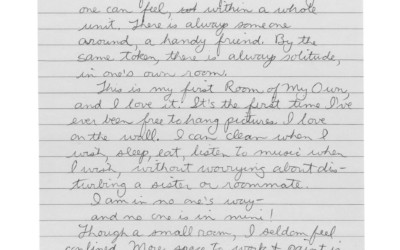 one can feel, within a whole
unit. There is always someone
around, a handy friend. By the
same token, there is always solitude,
in one's own room.
This is my first Room of My Own,
and I love it. It's the first time I've
ever been free to hang pictures I love
on the wall. I can clean when I
wish, sleep, eat, listen to music when
I wish, without worrying about dis-
turbing a sister or roommate.
I am in no one's way—
and no one is in mine!
Though a small room, I seldom feel
confined. More space to work & paint is